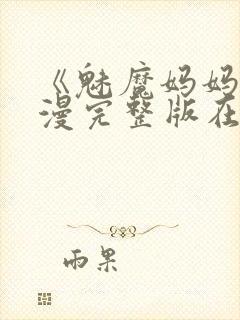 《魅魔妈妈
漫完整版在
雨果